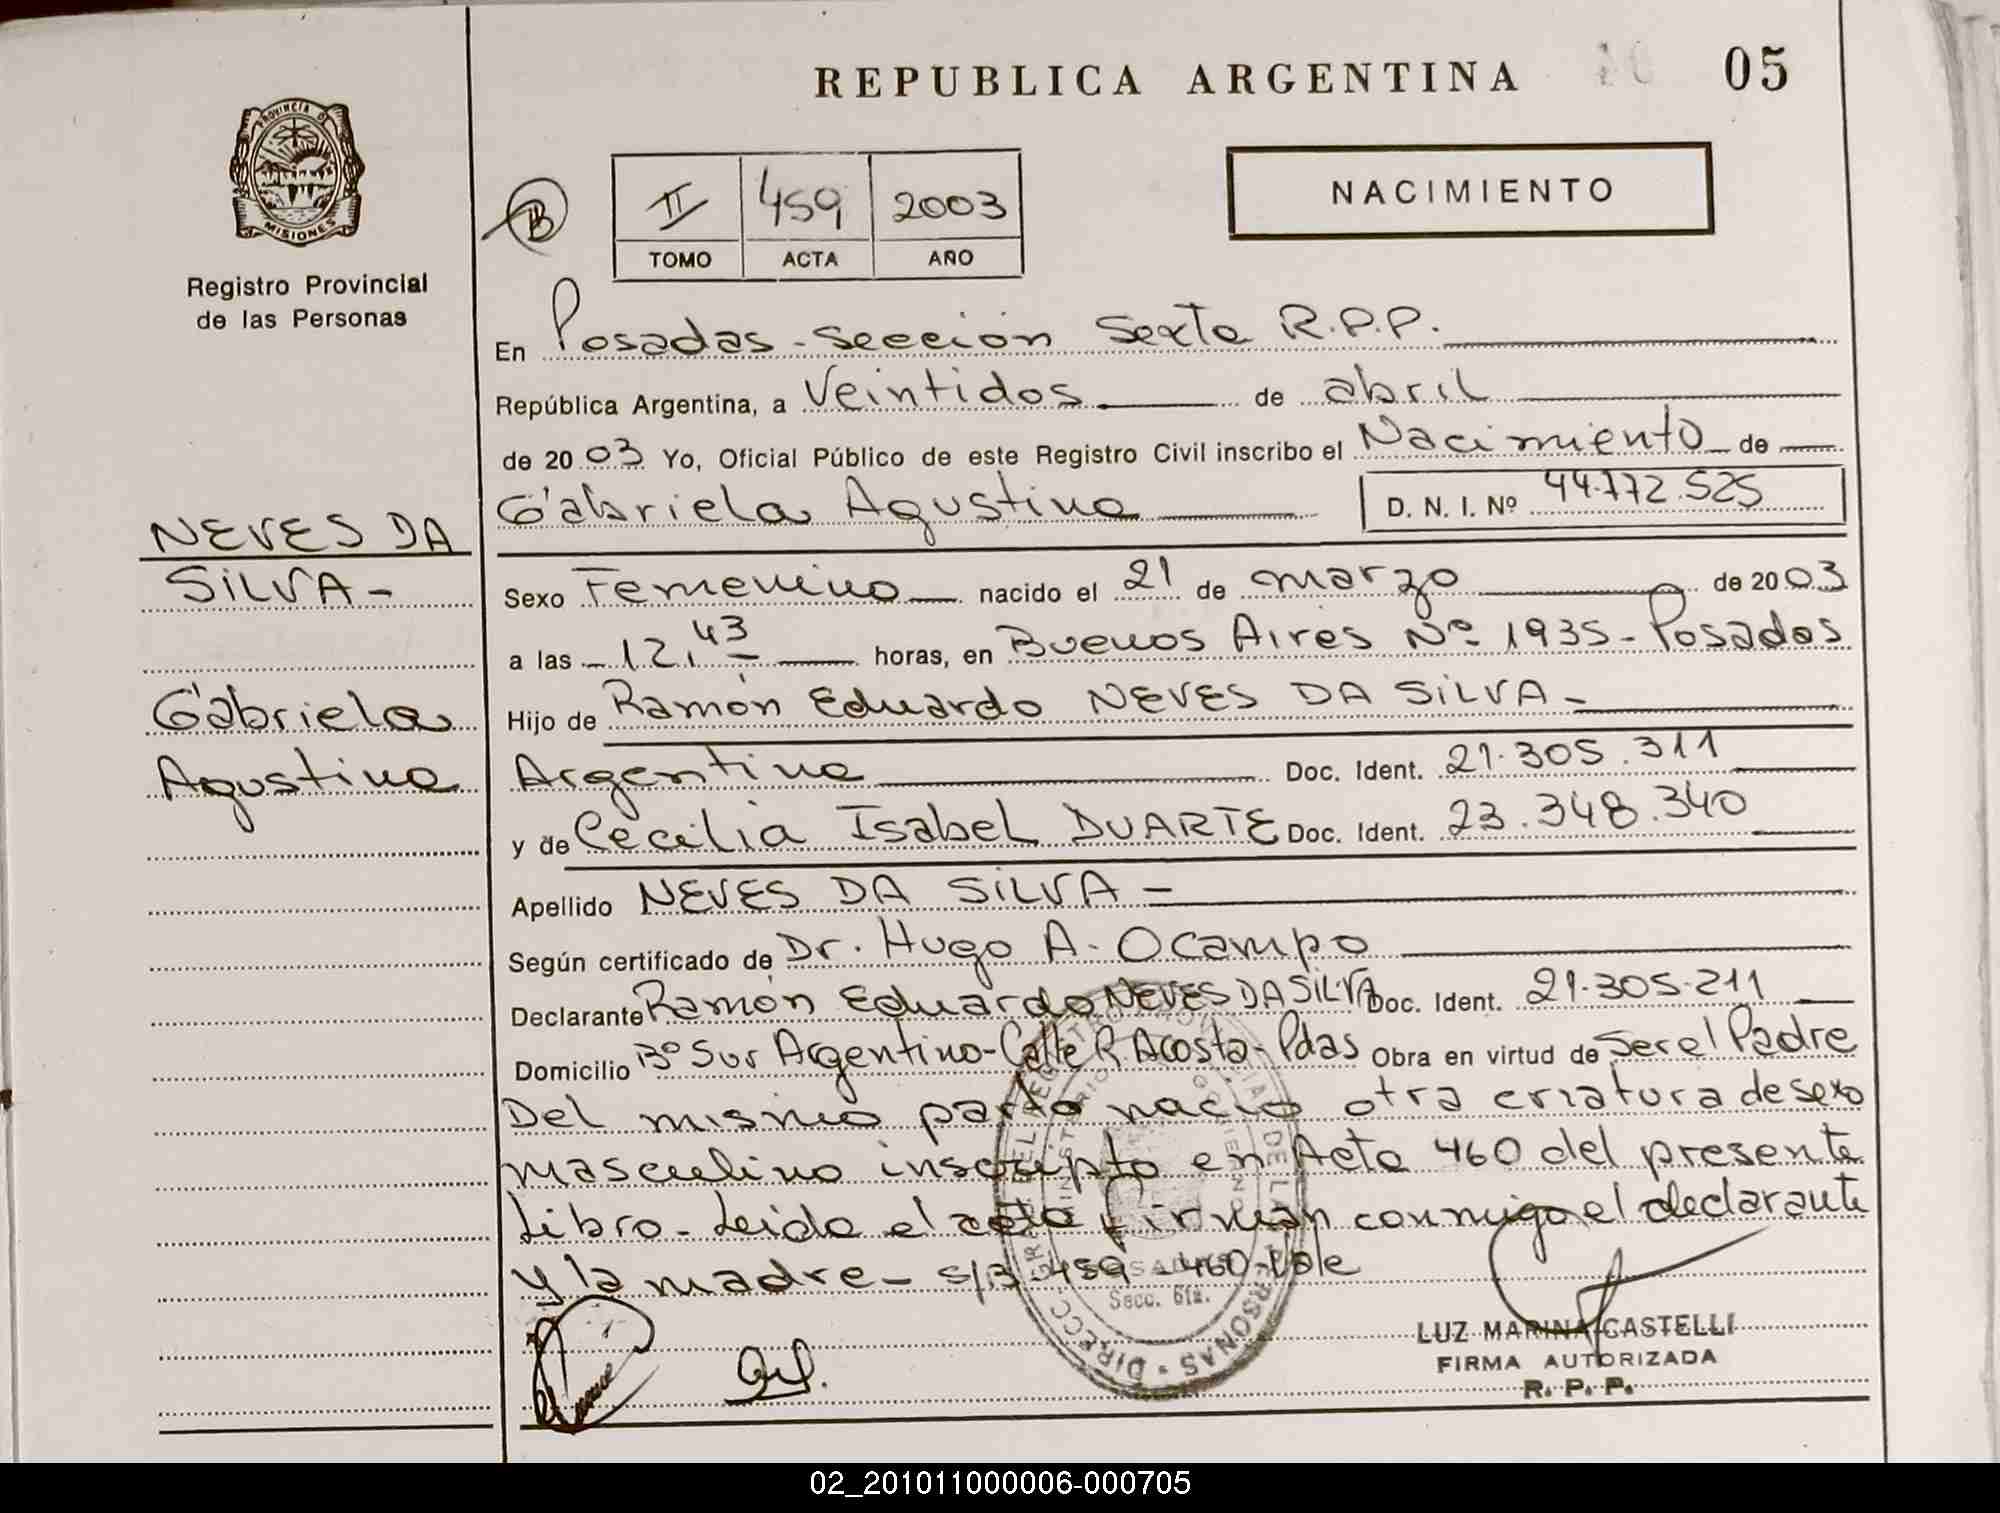 REPUBLICA ARGENTINA
05
PROVINCIA D
MISIONES
Registro Provincial
de las Personas
B
II 459 2003
TOMO ACTA AÑO
NACIMIENTO
En Posadas - Sección Sexta R.P.P.
República Argentina, a Veintidos de abril
de 2003 Yo, Oficial Público de este Registro Civil inscribo el Nacimiento de
Gabriela Agustina
D. N. I. Nº 44.772.525
NEVES DA
SILVA -
Gabriela
Agustina
Sexo Femenino nacido el 21 de marzo de 2003
a las 12,43 horas, en Buenos Aires Nº 1935 - Posadas
Hijo de Ramón Eduardo NEVES DA SILVA -
Argentina Doc. Ident. 21.305.311
y de Cecilia Isabel DUARTE Doc. Ident. 23.348.340
Apellido NEVES DA SILVA -
Según certificado de Dr. Hugo A. Ocampo
Declarante Ramón Eduardo NEVES DA SILVA Doc. Ident. 21.305.211
Domicilio Bº Sur Argentino - Calle R. Acosta - Pdas Obra en virtud de Ser el Padre
Del mismo parto nació otra criatura de sexo
masculino inscripto en Acta 460 del presente
Libro - Leida el acta firman conmigo el declarante
y la madre - S/B 459 - 460 - Vale
Secc. 6ta.
LUZ MARINA CASTELLI
FIRMA AUTORIZADA
R. P. P.
02_201011000006-000705